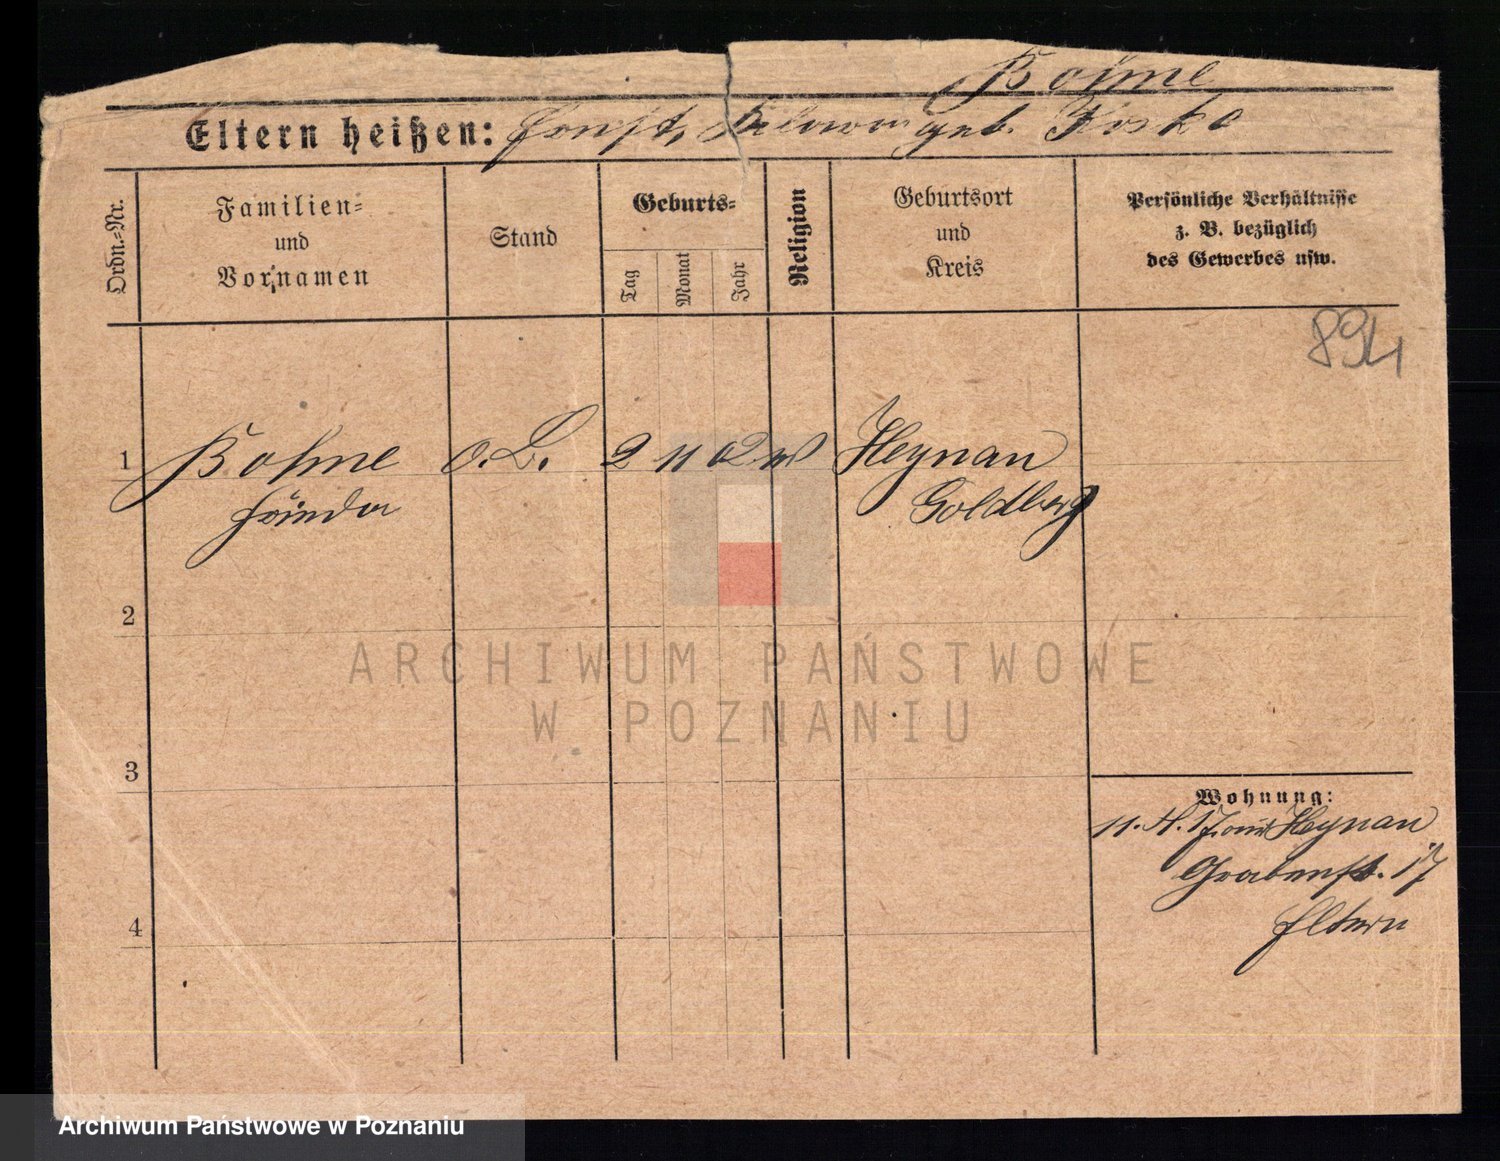 Bohme
Eltern heißen: Ernst, geb. Koske
Ordn.-Nr.
Familien-
und
Vornamen
Stand
Geburts-
Tag
Monat
Jahr
Religion
Geburtsort
und
Kreis
Persönliche Verhältnisse
z. B. bezüglich
des Gewerbes usw.
894
1 Bohme o. B. 2 11 02 Heynau
Frieda Goldberg
2
3
4
Wohnung:
11.4.17. aus Heynau
Grabenstr. 17
Eltern
ARCHIWUM PAŃSTWOWE
W POZNANIU
Archiwum Państwowe w Poznaniu